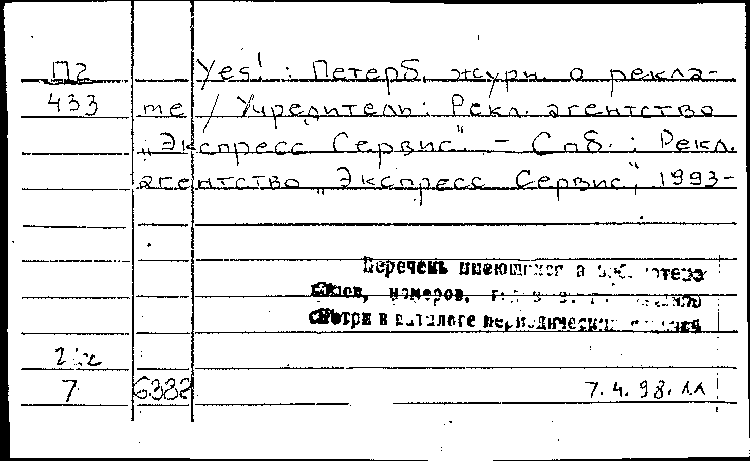 П2 Yes! : Петерб. журн. о рекла-
433 ме / Учредитель: Рекл. агентство
„Экспресс Сервис". – Спб. : Рекл.
агентство „Экспресс Сервис", 1993-
Перечень имеющихся в библиотеке
номеров,
смотри в каталоге периодических
7 6382 7.4.98.